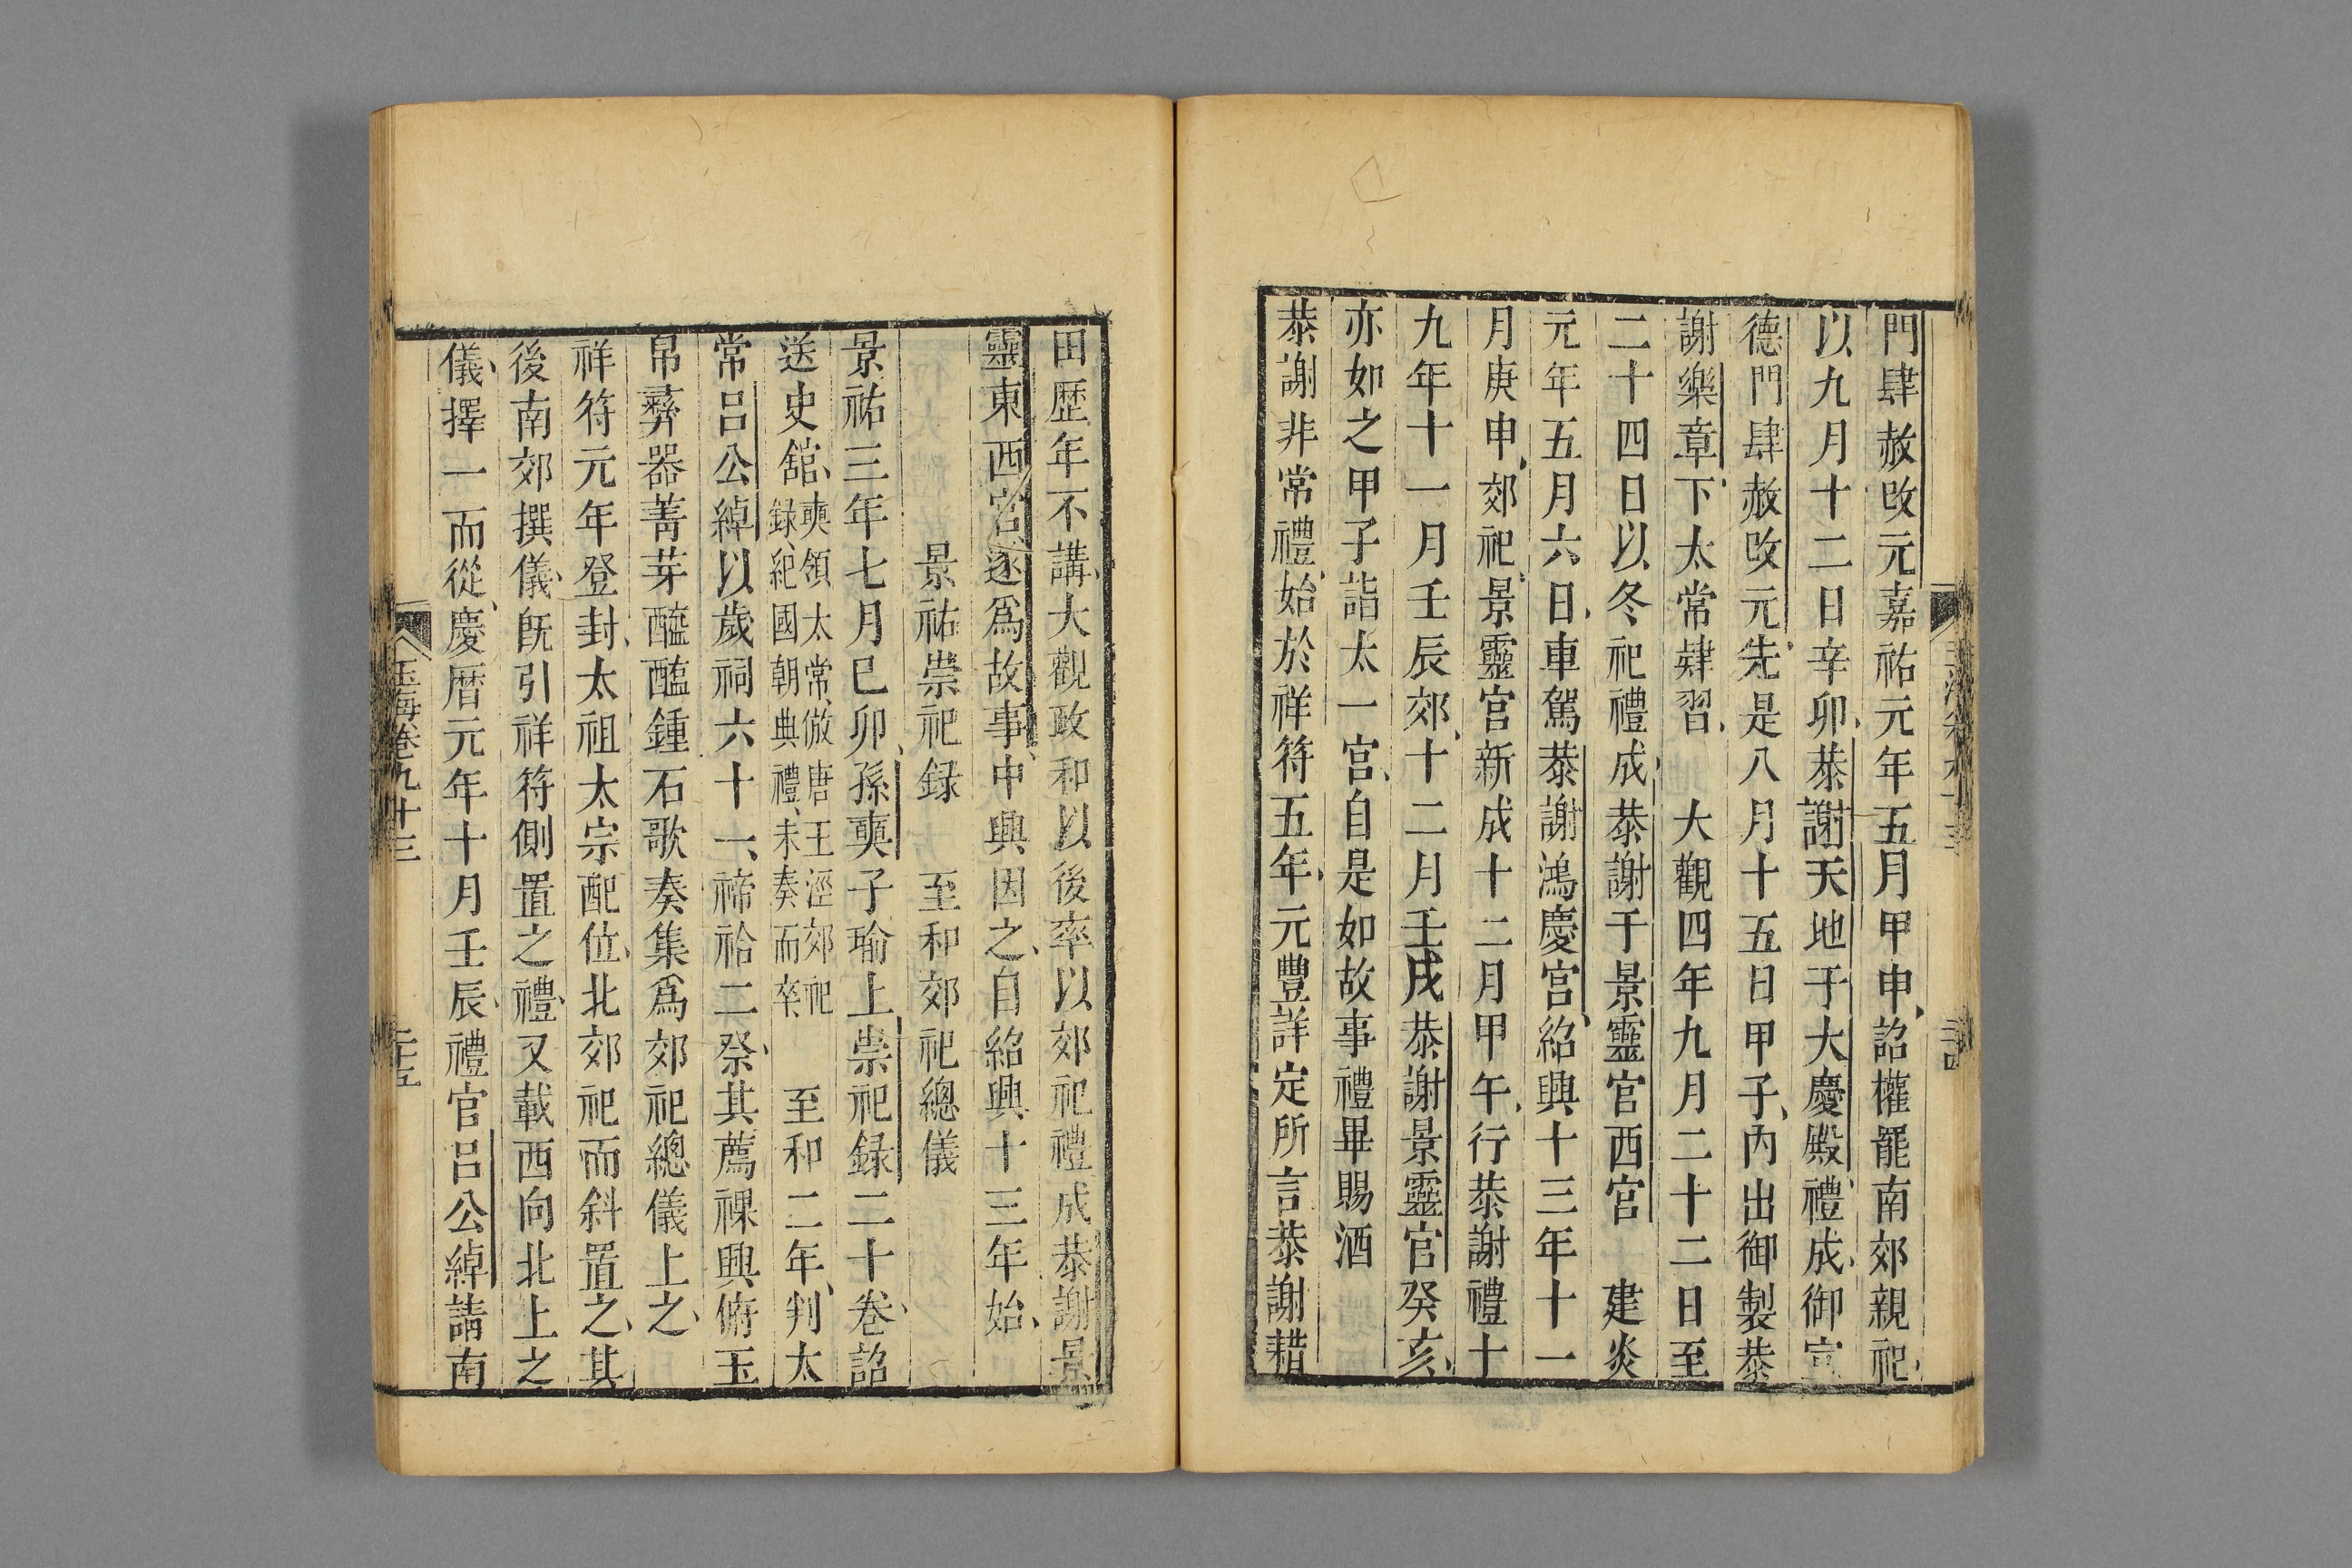 門肆赦改元嘉祐元年五月甲申詔權罷南郊親祀
以九月十二日辛卯恭謝天地于大慶殿禮成御宣
德門肆赦改元先是八月十五日甲子內出御製恭
謝樂章下太常肄習　大觀四年九月二十二日至
二十四日以冬祀禮成恭謝于景靈官西宮　建炎
元年五月六日車駕恭謝鴻慶宮紹興十三年十一
月庚申郊祀景靈宮新成十二月甲午行恭謝禮十
九年十一月壬辰郊十二月壬戌恭謝景靈官癸亥
亦如之甲子詣太一宮自是如故事禮畢賜酒
恭謝非常禮始於祥符五年元豐詳定所言恭謝耤
田歷年不講大觀政和以後率以郊祀禮成恭謝景
靈東西宮遂爲故事中興因之自紹興十三年始
景祐崇祀録　至和郊祀總儀
景祐三年七月巳卯孫奭子瑜上崇祀録二十卷詔
送史舘奭領太常倣唐王涇郊祀録紀國朝典禮未奏而卒　至和二年判太
常呂公綽以歲祠六十一禘祫二祭其薦祼興俯玉
帛彝器菁芽醯醢鍾石歌奏集爲郊祀總儀上之
祥符元年登封太祖太宗配位北郊祀而斜置之其
後南郊撰儀旣引祥符側置之禮又載西向北上之
儀擇一而從慶曆元年十月壬辰禮官呂公綽請南
玉海卷九十三　二十五